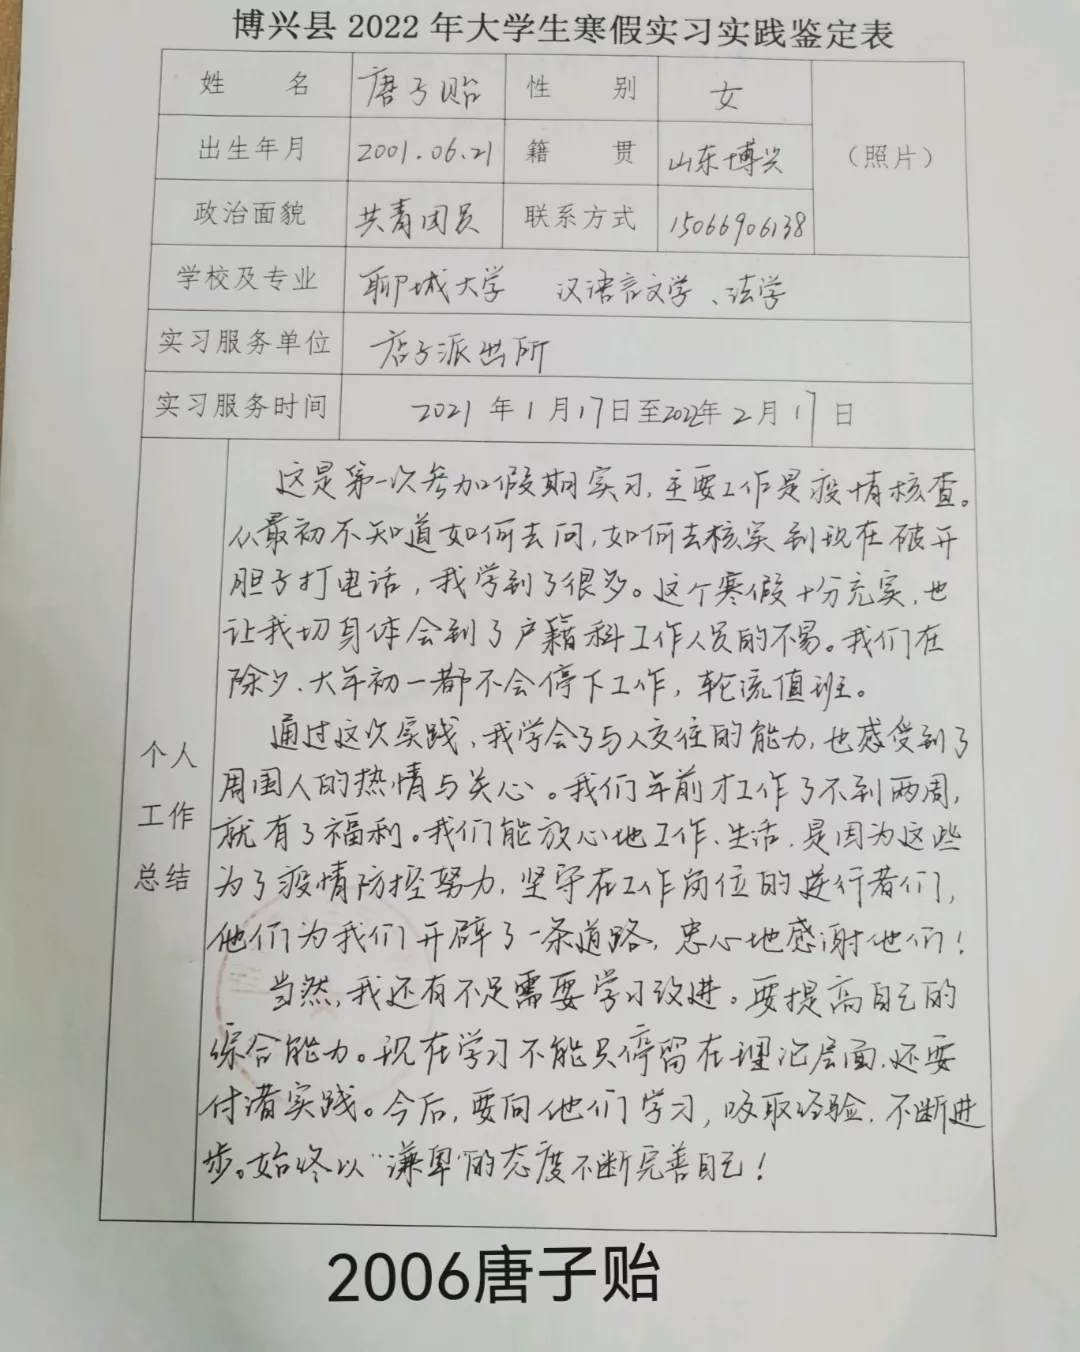 博兴县 2022 年大学生寒假实习实践鉴定表
姓 名 唐子贻 性 别 女
出生年月 2001.06.21 籍 贯 山东博兴 （照片）
政治面貌 共青团员 联系方式 15066906138
学校及专业 聊城大学 汉语言文学、法学
实习服务单位 店子派出所
实习服务时间 2021 年 1 月 17 日至 2022 年 2 月 17 日
个人
工作
总结
这是第一次参加假期实习，主要工作是疫情核查。
从最初不知道如何去问，如何去核实到现在破开
胆子打电话，我学到了很多。这个寒假十分充实，也
让我切身体会到了户籍科工作人员的不易。我们在
除夕、大年初一都不会停下工作，轮流值班。
通过这次实践，我学会了与人交往的能力，也感受到了
周围人的热情与关心。我们年前才工作了不到两周，
就有了福利。我们能放心地工作、生活，是因为这些
为了疫情防控努力，坚守在工作岗位的逆行者们，
他们为我们开辟了一条道路，忠心地感谢他们！
当然，我还有不足需要学习改进。要提高自己的
综合能力。现在学习不能只停留在理论层面，还要
付诸实践。今后，要向他们学习，吸取经验，不断进
步。始终以“谦卑”的态度不断完善自己！
2006唐子贻